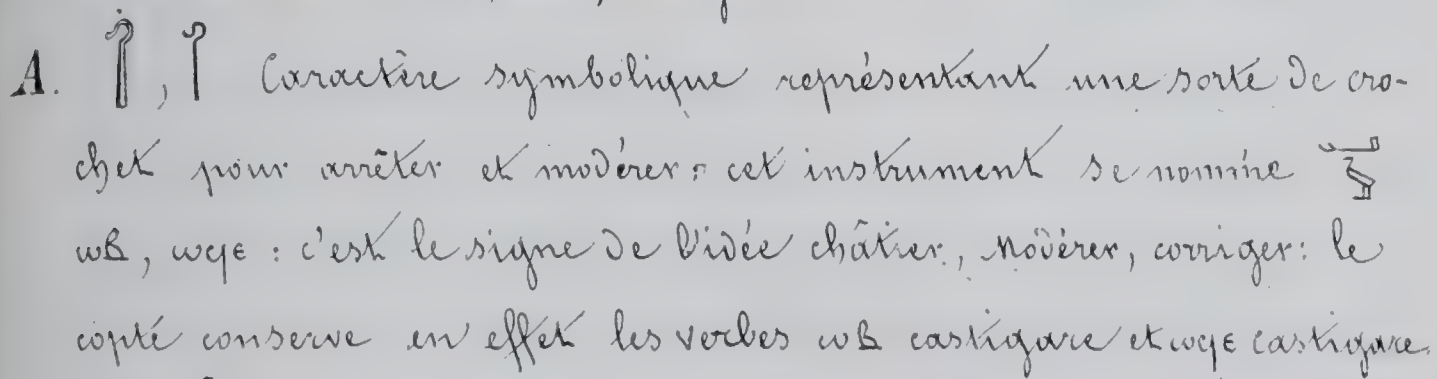 A. 𓋾, 𓋾 Caractère symbolique représentant une sorte de cro-
chet pour arrêter et modérer : cet instrument se nomme
ⲱⲃ, ⲱϥⲉ : c'est le signe de l'idée châtier, Modérer, corriger : le
copte conserve en effet les verbes ⲱⲃ castigare et ⲱϥⲉ castigare.